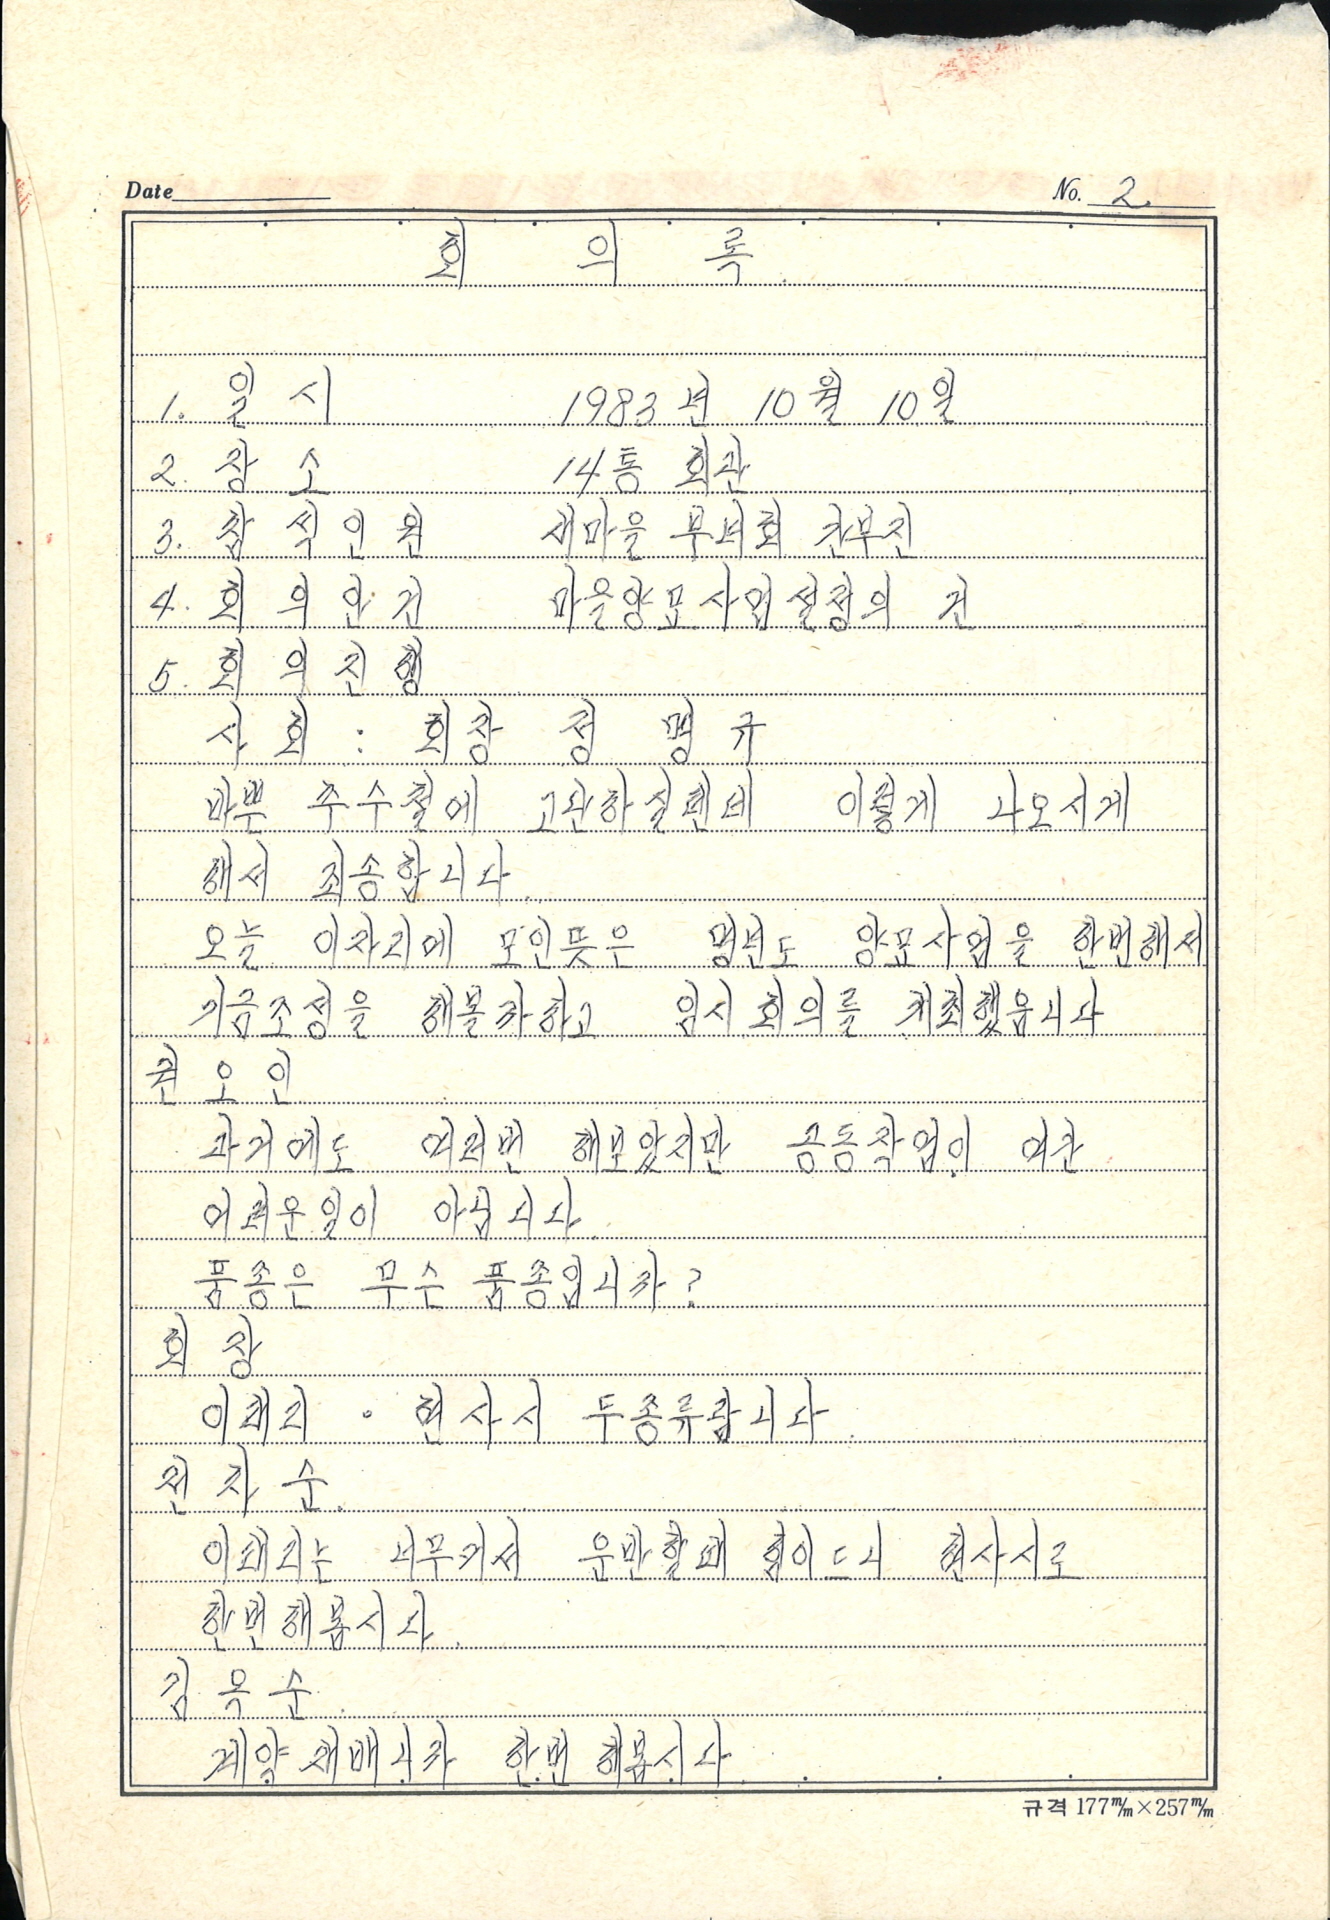 Date
No. 2
회 의 록
1. 일 시 1983년 10월 10일
2. 장 소 14통 회관
3. 참 석 인 원 새마을 부녀회 간부진
4. 회 의 안 건 마을양묘사업선정의 건
5. 회 의 진 행
사 회 : 회장 정 명 규
바쁜 추수철에 고단하실텐데 이렇게 나오시게
해서 죄송합니다.
오늘 이자리에 모인뜻은 명년도 양묘사업을 한번해서
기금조성을 해볼까하고 임시회의를 개최했읍니다
권 오 인
과거에도 여러번 해보았지만 공동작업이 여간
어려운일이 아닙니다.
품종은 무슨 품종입니까?
회 장
이태리 · 현사시 두종류랍니다.
전 자 순.
이태리는 너무커서 운반할때 힘이드니 현사시로
한번해봅시다.
김 옥 순.
계약재배니까 한번 해봅시다.
규격 177㎜×257㎜